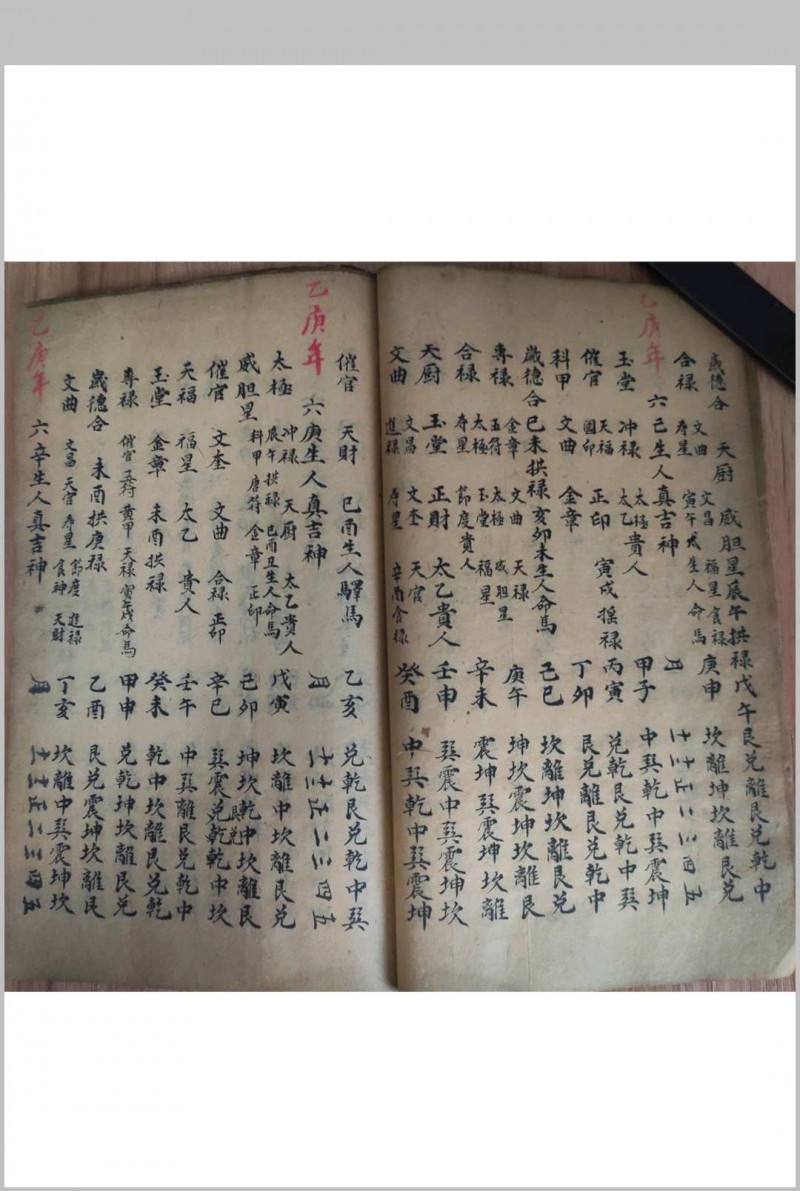 歲德合 天厨 威胆星辰午拱禄戊午艮兑離艮兑乾中
合禄 文曲 寿星 文昌 寅午戌生人命馬 福星 食禄 庚申 坎離坤坎離艮兑
乙庚年 六己生人真吉神 月 十一 十二 正 二 三 四 五
玉堂 冲禄 太極貴人 太乙 甲子 中巽乾中巽震坤
催官 天福 國印 正印 寅戌摇禄 丙寅 兑乾艮兑乾中巽
科甲 文曲 金章 丁卯 艮兑震艮兑乾中
歲德合 巳未拱禄 亥卯未生人命馬 己巳 坎離坤坎離艮兑
專禄 金章 五符 文曲 天禄 威胆星 庚午 坤坎震坤坎離艮
合禄 太極 寿星 節度貴人 玉堂 福星 辛未 震坤巽震坤坎離
天厨 玉堂 正財 太乙貴人 壬申 巽震中巽震坤坎
文曲 文昌 進禄 文奎 寿星 天官 辛酉食禄 癸酉 中巽乾中巽震坤
催官 天財 巳酉生人驛馬 乙亥 兑乾艮兑乾中巽
乙庚年 六庚生人真吉神 月 十一 十二 正 二 三 四 五
太極 冲禄 天厨 太乙貴人 辰午拱禄 巳酉丑生人命馬 戊寅 坎離中坎離艮兑
威胆星 科甲 唐符 金章 正印 己卯 坤坎乾中坎離艮
催官 文奎 文曲 合禄 正印 辛巳 巽震艮兑兑乾乾中坎
天福 福星 太乙 貴人 壬午 中巽離艮兑乾中
玉堂 金章 未酉拱禄 癸未 乾中坎離艮兑乾
專禄 催官 五符 黄甲 天禄 寅午戌命馬 甲申 兑乾坤坎離艮兑
歲德合 未酉拱庚禄 乙酉 艮兑震坤坎離艮
文曲 文昌 天官 寿星 節度 食神 進禄 天財 丁亥 坎離中巽震坤坎
乙庚年 六辛生人真吉神 月 十一 十二 正 二 三 四 五